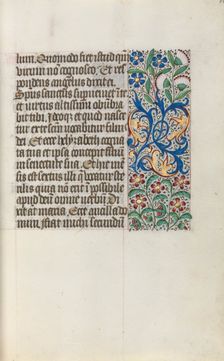 lum. Quomodo fiet istud qm
virum non cognosco. Et res
pondens angelus dixit ei.
Spūs sanctus superveniet in te
et virtus altissimi obumbra
bit tibi. Ideoqȝ et quod nasce
tur ex te sanctū vocabitur filius
dei. Et ecce helyzabeth cogna
ta tua et ipsa concepit filium
in senectute sua. Et hic men
sis est sextus illi que vocatur ste
rilis quia nō erit impossibile
apud deum omne verbū. Di
xit aūt maria. Ecce ancilla do
mini. fiat michi secundum